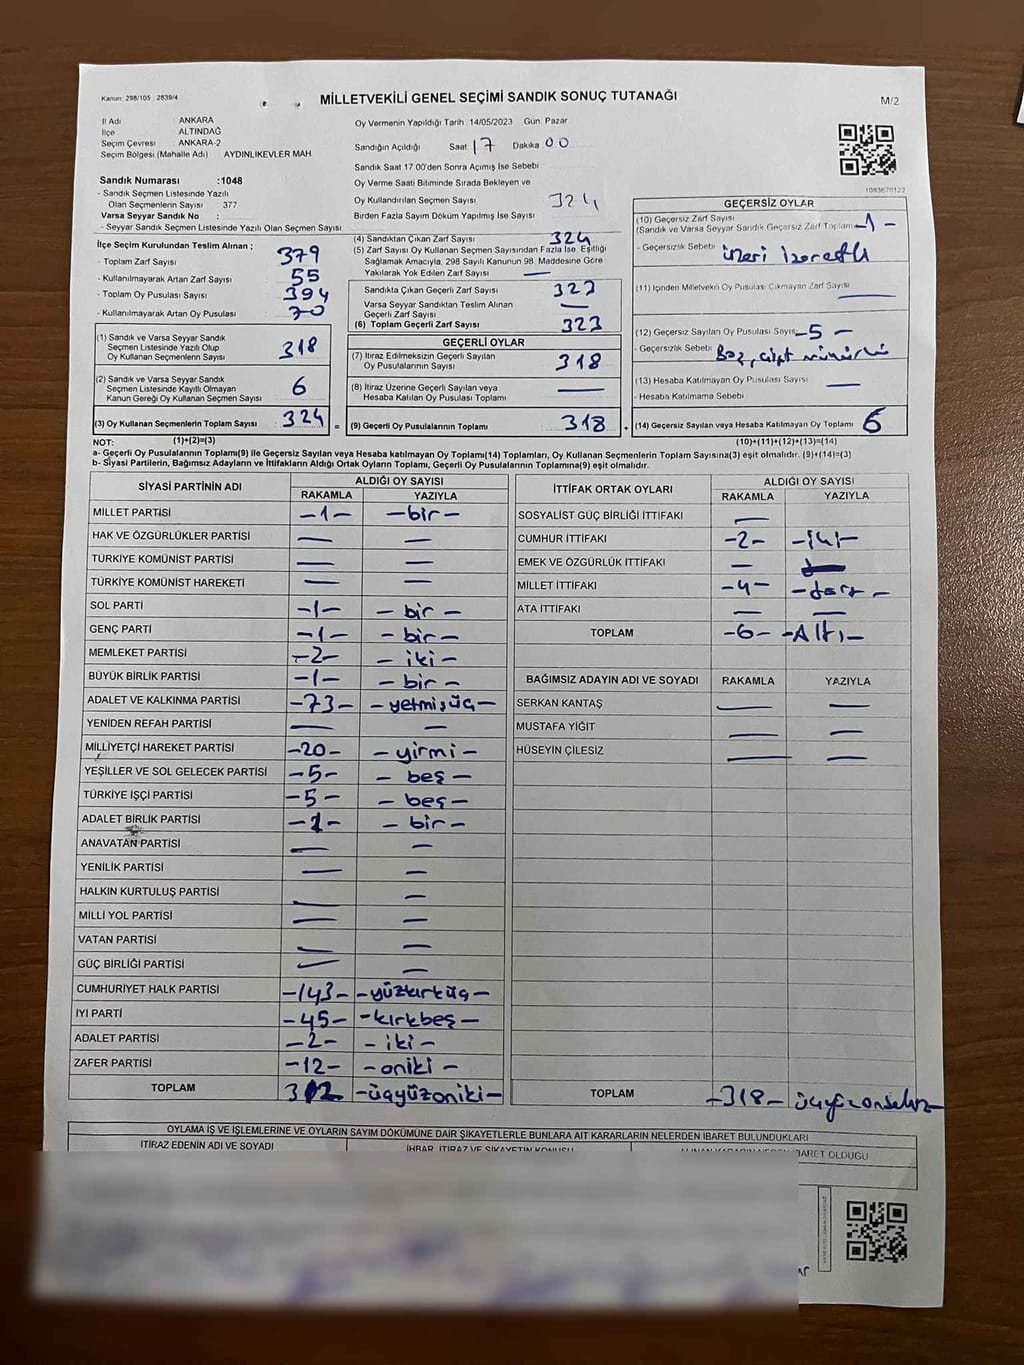 Kanun: 298/105 , 2839/4
MİLLETVEKİLİ GENEL SEÇİMİ SANDIK SONUÇ TUTANAĞI
M/2
İl Adı ANKARA
İlçe ALTINDAĞ
Seçim Çevresi ANKARA-2
Seçim Bölgesi (Mahalle Adı) AYDINLIKEVLER MAH
Sandık Numarası :1048
- Sandık Seçmen Listesinde Yazılı
Olan Seçmenlerin Sayısı : 377
Varsa Seyyar Sandık No :
- Seyyar Sandık Seçmen Listesinde Yazılı Olan Seçmen Sayısı :
Oy Vermenin Yapıldığı Tarih :14/05/2023 Gün: Pazar
Sandığın Açıldığı Saat: 17 Dakika 00
Sandık Saat 17:00'den Sonra Açımış İse Sebebi :
Oy Verme Saati Bitiminde Sırada Bekleyen ve
Oy Kullandırılan Seçmen Sayısı 324
Birden Fazla Sayım Döküm Yapılmış İse Sayısı
1083670122
İlçe Seçim Kurulundan Teslim Alınan ;
- Toplam Zarf Sayısı 379
- Kullanılmayarak Artan Zarf Sayısı 55
- Toplam Oy Pusulası Sayısı 394
- Kullanılmayarak Artan Oy Pusulası 70
(1) Sandık ve Varsa Seyyar Sandık
Seçmen Listesinde Yazılı Olup
Oy Kullanan Seçmenlerin Sayısı 318
(2) Sandık ve Varsa Seyyar Sandık
Seçmen Listesinde Kayıtlı Olmayan
Kanun Gereği Oy Kullanan Seçmen Sayısı 6
(3) Oy Kullanan Seçmenlerin Toplam Sayısı 324 =
(4) Sandıktan Çıkan Zarf Sayısı 324
(5) Zarf Sayısı Oy Kullanan Seçmen Sayısından Fazla İse, Eşitliği
Sağlamak Amacıyla, 298 Sayılı Kanunun 98. Maddesine Göre
Yakılarak Yok Edilen Zarf Sayısı —
Sandıkta Çıkan Geçerli Zarf Sayısı 323
Varsa Seyyar Sandıktan Teslim Alınan
Geçerli Zarf Sayısı —
(6) Toplam Geçerli Zarf Sayısı 323
GEÇERLİ OYLAR
(7) İtiraz Edilmeksizin Geçerli Sayılan
Oy Pusulalarının Sayısı 318
(8) İtiraz Üzerine Geçerli Sayılan veya
Hesaba Katılan Oy Pusulası Toplamı —
(9) Geçerli Oy Pusulalarının Toplamı 318 +
GEÇERSİZ OYLAR
(10) Geçersiz Zarf Sayısı
(Sandık ve Varsa Seyyar Sandık Geçersiz Zarf Toplamı) -1-
- Geçersizlik Sebebi üzeri
(11) İçinden Milletvekili Oy Pusulası Çıkmayan Zarf Sayısı —
(12) Geçersiz Sayılan Oy Pusulası Sayısı -5-
- Geçersizlik Sebebi Boş, çift mühürlü
(13) Hesaba Katılmayan Oy Pusulası Sayısı —
- Hesaba Katılmama Sebebi
(14) Geçersiz Sayılan veya Hesaba Katılmayan Oy Toplamı 6
NOT: (1)+(2)=(3)
(10)+(11)+(12)+(13)=(14)
a- Geçerli Oy Pusulalarının Toplamı(9) ile Geçersiz Sayılan veya Hesaba Katılmayan Oy Toplamı(14) Toplamları, Oy Kullanan Seçmenlerin Toplam Sayısına(3) eşit olmalıdır. (9)+(14)=(3)
b- Siyasi Partilerin, Bağımsız Adayların ve İttifakların Aldığı Ortak Oyların Toplamı, Geçerli Oy Pusulalarının Toplamına(9) eşit olmalıdır.
SİYASİ PARTİNİN ADI ALDIĞI OY SAYISI
RAKAMLA YAZIYLA
MİLLET PARTİSİ -1- -bir-
HAK VE ÖZGÜRLÜKLER PARTİSİ — —
TÜRKİYE KOMÜNİST PARTİSİ — —
TÜRKİYE KOMÜNİST HAREKETİ — —
SOL PARTİ -1- -bir-
GENÇ PARTİ -1- -bir-
MEMLEKET PARTİSİ -2- -iki-
BÜYÜK BİRLİK PARTİSİ -1- -bir-
ADALET VE KALKINMA PARTİSİ -73- -yetmişüç-
YENİDEN REFAH PARTİSİ — —
MİLLİYETÇİ HAREKET PARTİSİ -20- -yirmi-
YEŞİLLER VE SOL GELECEK PARTİSİ -5- -beş-
TÜRKİYE İŞÇİ PARTİSİ -5- -beş-
ADALET BİRLİK PARTİSİ -1- -bir-
ANAVATAN PARTİSİ — —
YENİLİK PARTİSİ — —
HALKIN KURTULUŞ PARTİSİ — —
MİLLİ YOL PARTİSİ — —
VATAN PARTİSİ — —
GÜÇ BİRLİĞİ PARTİSİ — —
CUMHURİYET HALK PARTİSİ -143- -yüzkırküç-
İYİ PARTİ -45- -kırkbeş-
ADALET PARTİSİ -2- -iki-
ZAFER PARTİSİ -12- -oniki-
TOPLAM 312 -üçyüzoniki-
İTTİFAK ORTAK OYLARI ALDIĞI OY SAYISI
RAKAMLA YAZIYLA
SOSYALİST GÜÇ BİRLİĞİ İTTİFAKI —
CUMHUR İTTİFAKI -2- -iki-
EMEK VE ÖZGÜRLÜK İTTİFAKI —
MİLLET İTTİFAKI -4- -dört-
ATA İTTİFAKI — —
TOPLAM -6- -Altı-
BAĞIMSIZ ADAYIN ADI VE SOYADI RAKAMLA YAZIYLA
SERKAN KANTAŞ — —
MUSTAFA YİĞİT — —
HÜSEYİN ÇİLESİZ — —
TOPLAM -318- üçyüzonsekiz
OYLAMA İŞ VE İŞLEMLERİNE VE OYLARIN SAYIM DÖKÜMÜNE DAİR ŞİKAYETLERLE BUNLARA AİT KARARLARIN NELERDEN İBARET BULUNDUKLARI
İTİRAZ EDENİN ADI VE SOYADI İHBAR, İTİRAZ VE ŞİKAYETİN KONUSU İBARET OLDUĞU